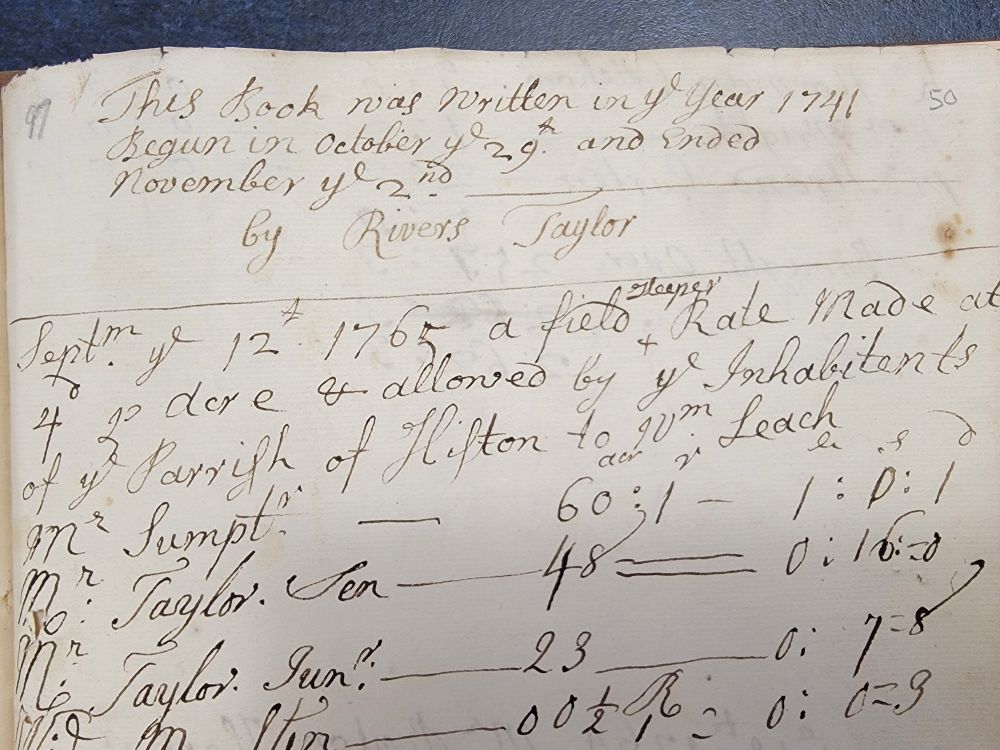 97
50
This Book was Written in yᵉ Year 1741
Begun in October yᵉ 29ᵗ. and Ended
November yᵉ 2ⁿᵈ
by Rivers Taylor
Septᵐ. yᵉ 12ᵗ. 1765 a field Keeper Rate Made at
4ᵈ pʳ Acre & allowed by yᵉ Inhabitents
of yᵉ Parrish of Histon to Wᵐ Leach
acr r £ s d
Mʳ Sumptʳ. — 60 : 1 — 1 : 0 : 1
Mʳ. Taylor. Sen — 48 = 0 : 16 : 0
Mʳ. Taylor. Junʳ. — 23 — 0 : 7 = 8
Wid — 00 ½ R 1 = 0 : 0 = 3